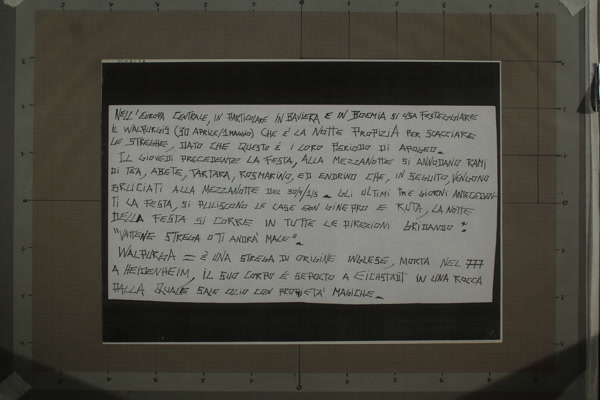 NELL'EUROPA CENTRALE, IN PARTICOLARE IN BAVIERA E IN BOEMIA SI USA FESTEGGIARE
IL WALPURGIS (30 APRILE/1 MAGGIO) CHE È LA NOTTE PROPIZIA PER SCACCIARE
LE STREGHE, DATO CHE QUESTO È I LORO PERIODO DI APOGEO.
IL GIOVEDI PRECEDENTE LA FESTA, ALLA MEZZANOTTE SI ANNODANO RAMI
DI TEA, ABETE, TARTARA, ROSMARINO, ED ENDRINO CHE, IN SEGUITO, VENGONO
BRUCIATI ALLA MEZZANOTTE DEL 30/4/1/5. GLI ULTIMI TRE GIORNI ANTECEDEN-
TI LA FESTA, SI PULISCONO LE CASE CON GINEPRO E RUTA, LA NOTTE
DELLA FESTA SI CORRE IN TUTTE LE DIREZIONI GRIDANDO:
"VATTENE STREGA O TI ANDRÀ MALE".
WALPURGA = È UNA STREGA DI ORIGINE INGLESE, MORTA NEL 777
A HEIDENHEIM, IL SUO CORPO È SEPOLTO A EICHSTADT IN UNA ROCCA
DALLA QUALE SALE OLIO CON PROPIETA' MAGICHE.